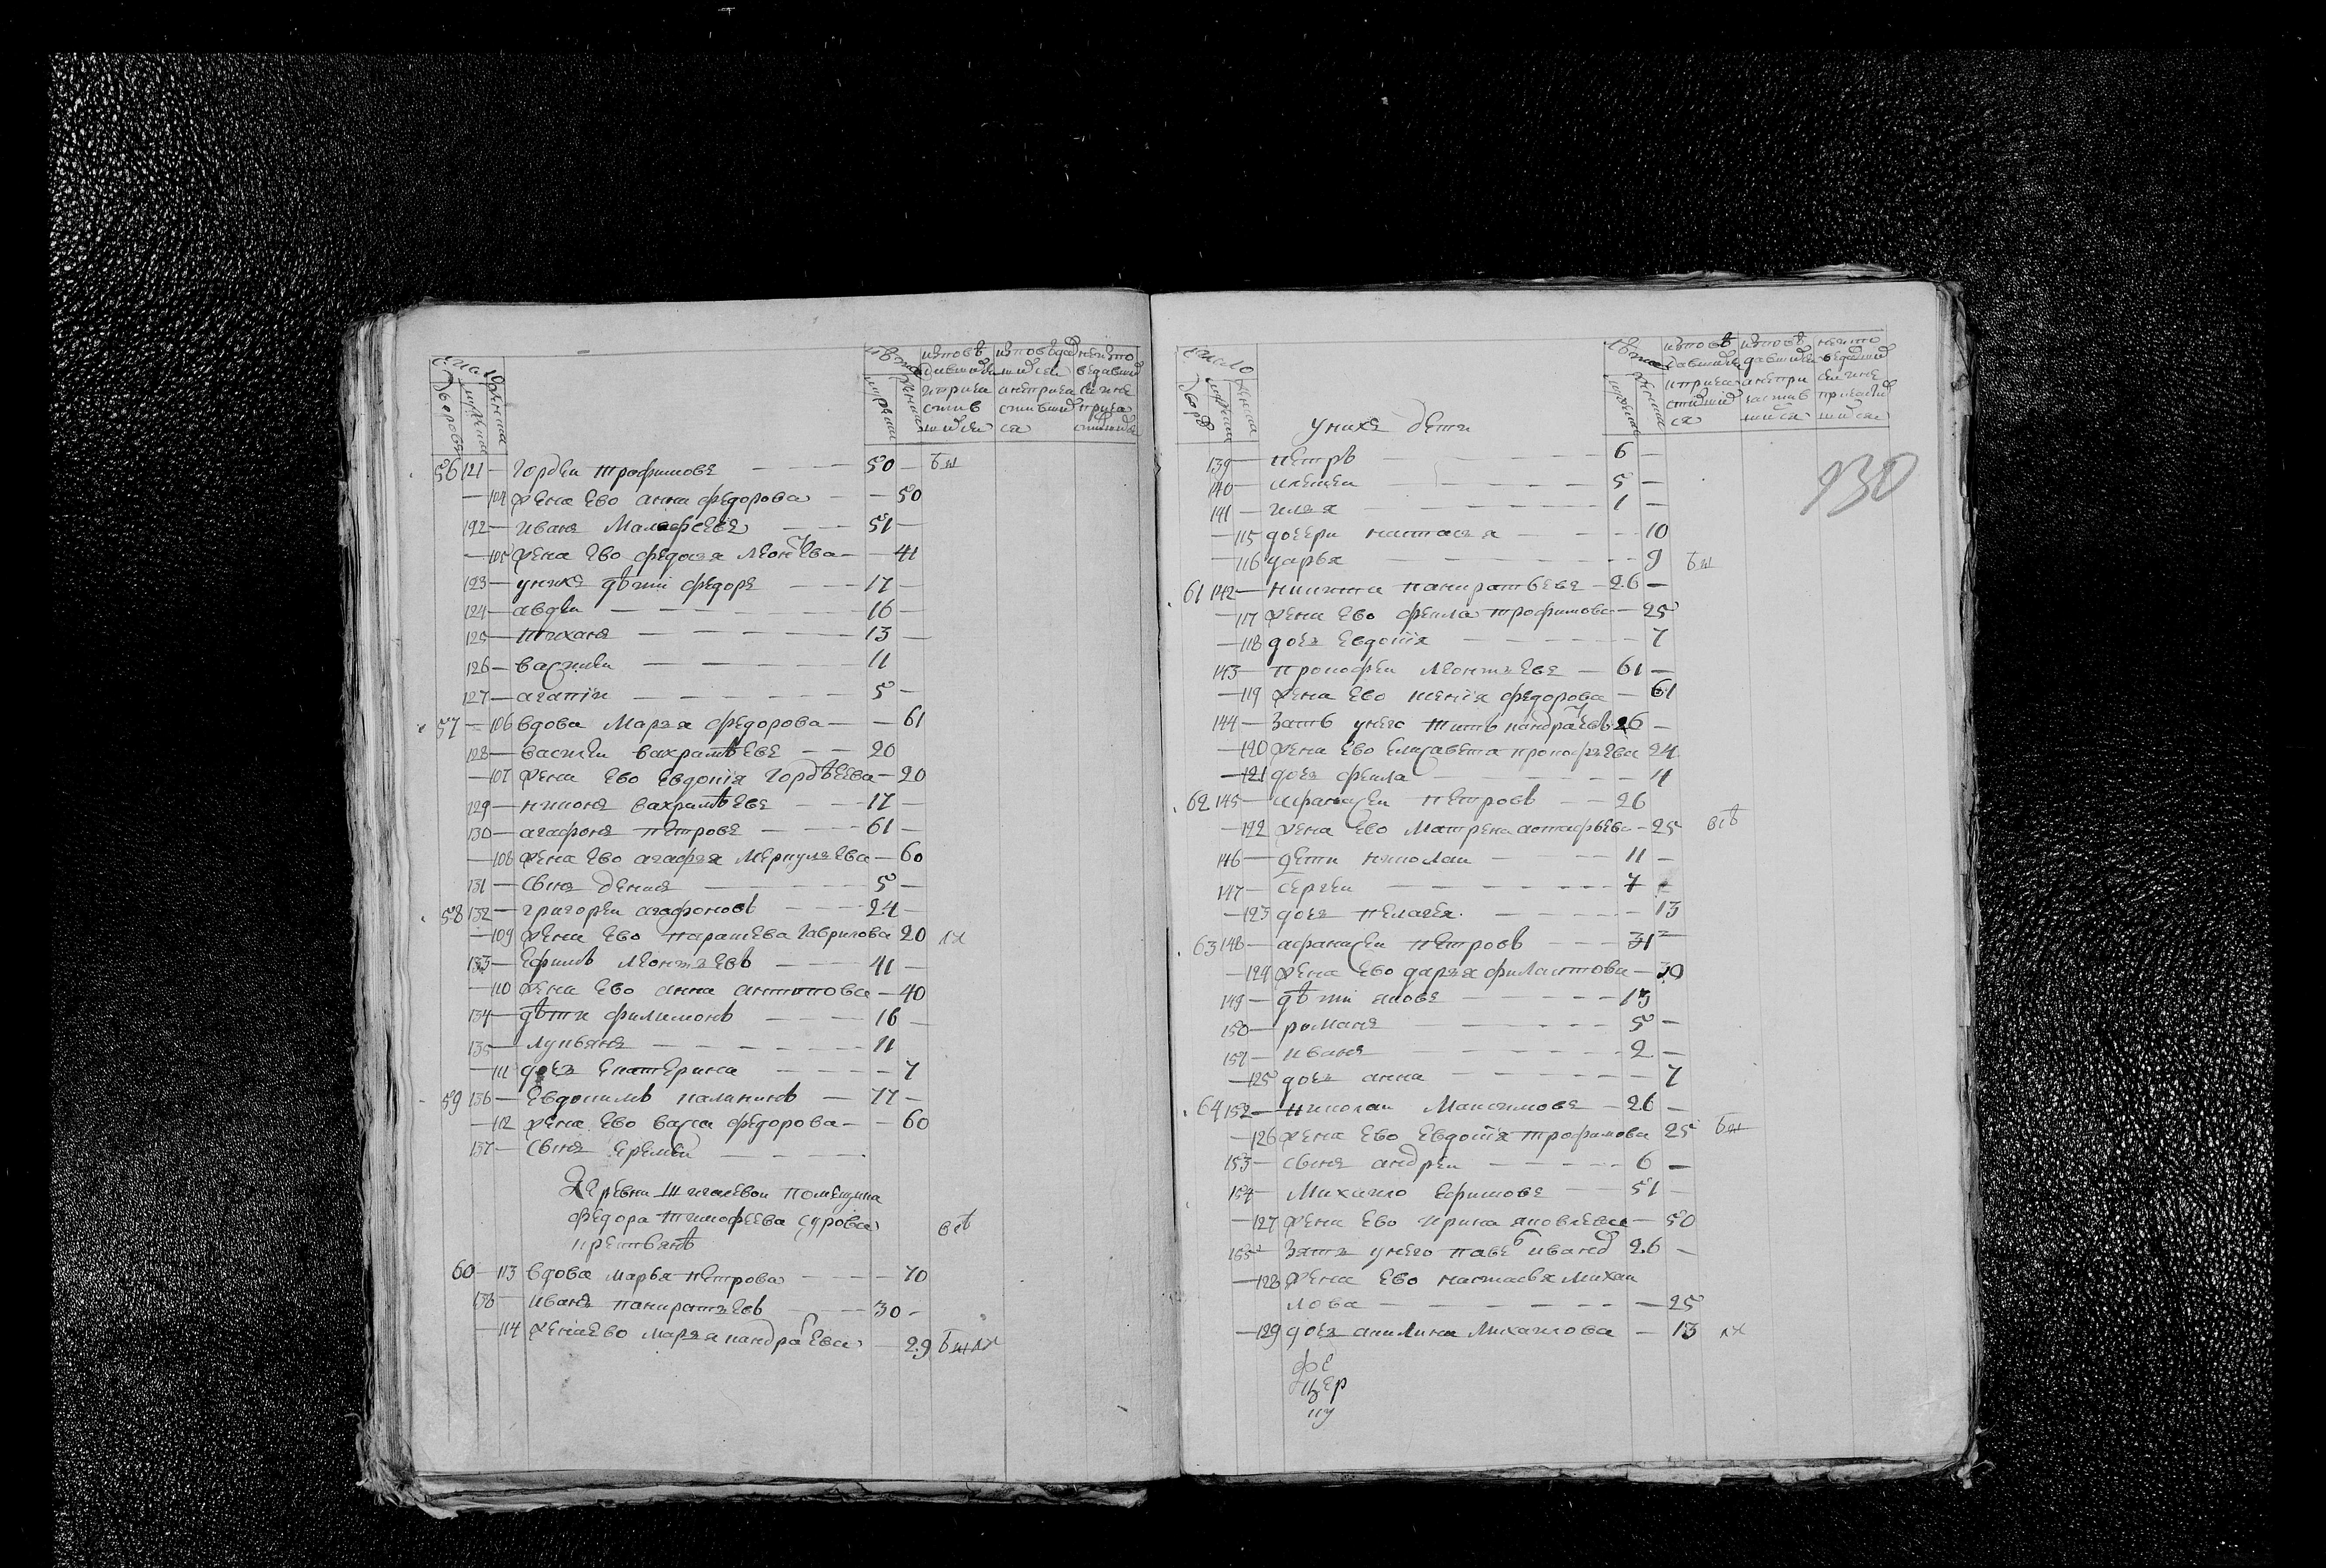 Число
Дворовъ
мужеска
женска
лѣта
мужеска
женска
исповѣ
давшиися
ипричa
стив
шиися
исповѣдав
шиися
анеприча
стившии
ся
неиспо
ведавши
сяине
прича
стившися
56 121 — Гордеи трофимовъ — 50 — бы
— 104 жена Ево анна федорова — 50
122 — Иванъ Малафеевъ — 51 —
— 105 жена Ево федосья Леонтьева — 41
123 — унихъ дѣти федоръ — 17 —
124 — авдеи — 16 —
125 — тиханъ — 13 —
126 — василеи — 11
127 — агапiи — 5 —
57 — 106 вдова Марья федорова — 61
128 — василеи вахрамѣевъ — 20
— 107 жена Ево Евдокiя Гордѣева — 20
129 — никонъ вахрамѣевъ — 17 —
130 — агафонъ петровъ — 61 —
— 108 жена Ево агафья Меркульева — 60
131 — сынъ денисъ — 5 —
58 132 — григореи агафоновъ — 24 —
— 109 жена Ево парасковa Гаврилова 20
133 — Ефимъ Леонтьевъ — 41 —
— 110 жена Ево анна антипова — 40
134 — дѣти филимонъ — 16 —
135 — Лукьянъ — 11
— 111 дочь Екатерина — 7
59 136 — Евдокимъ калининъ — 77 —
— 112 жена Ево васса федорова — 60
137 — сынъ Еремеи —
Деревни помещика
федора тимофеева сурова
крестьянъ
всѣ
60 — 113 вдова марья петрова — 70
138 — Иванъ панкратьевъ — 30 —
— 114 женаЕво марья кандратьева — 29
Число
Дворовъ
мужеска
женска
лѣта
мужеска
женска
исповѣ
давшиися
иприча
стившии
ся
исповѣ
давшиися
непри
частив
шиися
неиспо
ведавшии
сяине
причасти
шиися
унихъ дети
930
139 — петръ — 6 —
140 — алексеи — 5 —
141 — илья — 1 —
— 115 дочери настасья — 10
— 116 дарья — 9 бы
61 142 — никита панкратьевъ — 26 —
— 117 жена Ево фекла трофимова — 25
— 118 дочь Евдокiя — 7
143 — прокофеи Леонтьевъ — 61 —
— 119 жена Ево ксенiя федорова — 61
144 — Зать унего титъ кандратьевъ 26 —
— 120 жена Ево Елисавета прокофьева 24
— 121 дочь фекла — 4
62 145 — афанасеи петровъ — 26
— 122 жена Ево Матрена астафьева — 25 всѣ
146 — дети николаи — 11 —
147 — сергеи — 7
— 123 дочь пелагея — 13
63 148 — афанасеи петровъ — 31 —
— 124 жена Ево дарья филантова — 30
149 — дѣти яковъ — 13
150 — романъ — 5 —
151 — иванъ — 2 —
— 125 дочь анна — 7
64 152 — николаи Максимовъ — 26 —
— 126 жена Ево Евдокiя трофимова 25 бы
153 — сынъ андреи — 6 —
154 — Михаило Ефимовъ — 51 —
— 127 жена Ево Ирина яковлева — 50
155 — Зять унего павелъ иванов 26 —
— 128 жена Ево настасья михаи
лова — 25
— 129 дочь акилина Михаилова — 13
фе
Цер
ку